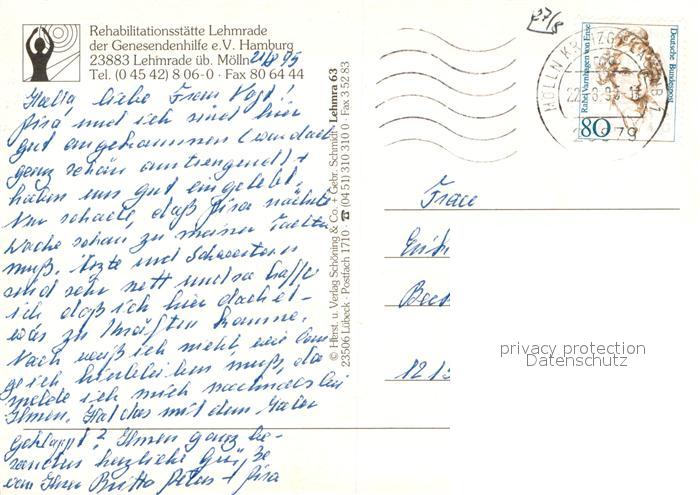 Rehabilitationsstätte Lehmrade
der Genesendenhilfe e.V. Hamburg
23883 Lehmrade üb. Mölln
Tel. (0 45 42) 8 06-0 · Fax 80 64 44
21/8 95
Hallo, liebe Frau Vogt!
und ich sind hier
gut angekommen (war doch
ganz schön anstrengend) +
haben uns gut eingelebt.
Nur schade, daß nächste
Woche schon zu meiner
muß. Ärzte und Schwestern
sind sehr nett und so hoffe
ich, daß ich hier doch et-
was zu Kräften komme.
Noch weiß ich nicht, wie lan
ge ich hierbleiben muß, da
melde ich mich nochmals bei
Ihnen. Hat das mit dem
geklappt? Ihnen ganz be-
sonders herzliche Grüße
von Ihrer Britta +
© Herst. u. Verlag Schöning & Co. + Gebr. Schmidt · Lehmra 63
23506 Lübeck · Postfach 1710 · ☎ (04 51) 310 310 0 · Fax 3 52 83
27/8
MÖLLN KR HZGT LAUENB
23879
Deutsche Bundespost
Rahel Varnhagen von Ense
80
Frau
privacy protection
Datenschutz